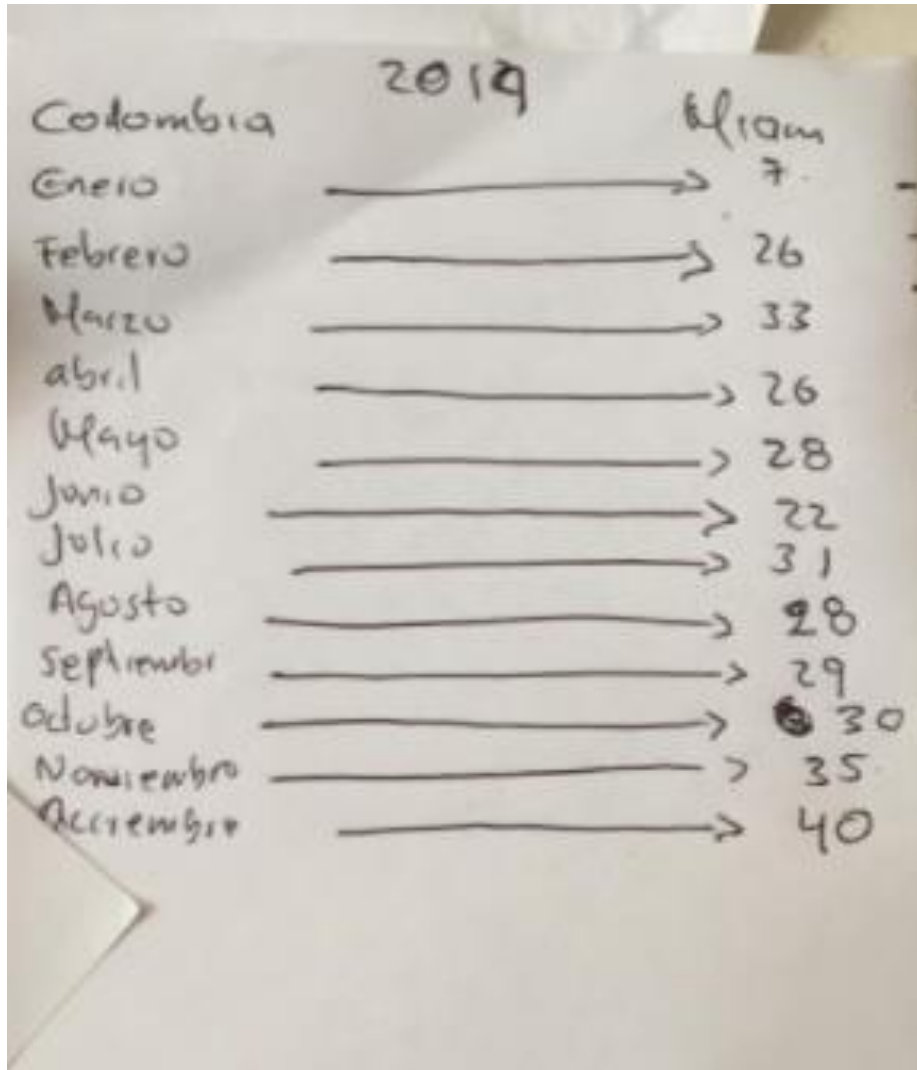 2019
Colombia Miam
Enero → 7.
Febrero → 26
Marzo → 33
abril → 26
Mayo → 28
Junio → 22
Julio → 31
Agosto → 28
Septiembr → 29
Octubre → 30
Noviembre → 35
Diciembre → 40